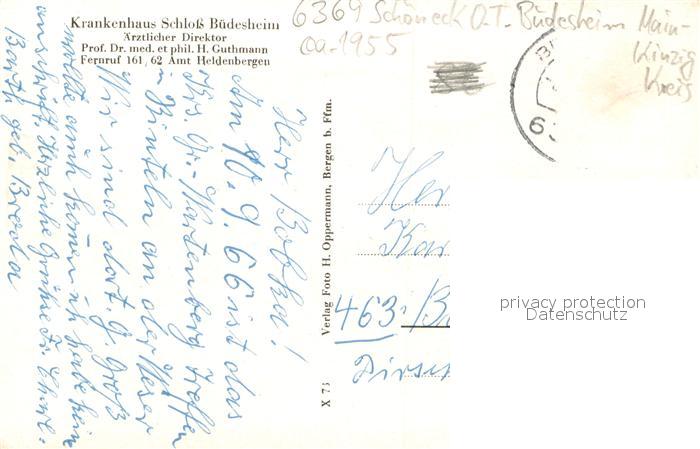 Krankenhaus Schloß Büdesheim
Ärztlicher Direktor
Prof. Dr. med. et phil. H. Guthmann
Fernruf 161, 62 Amt Heldenbergen
6369 Schöneck O.T. Büdesheim Main-
Kinzig
Kreis
ca. 1955
Herr Bobka!
Am 10.9.66 ist das
Gr.-Wartenberg Treffen
in Rinteln an der Weser
Wir sind dort. G. Groß
wollte auch komen ich habe keine
anschrift. Herzliche Grüße Fr.
geb.
Verlag Foto H. Oppermann, Bergen b. Ffm.
X 73
Her
Kar
463
privacy protection
Datenschutz